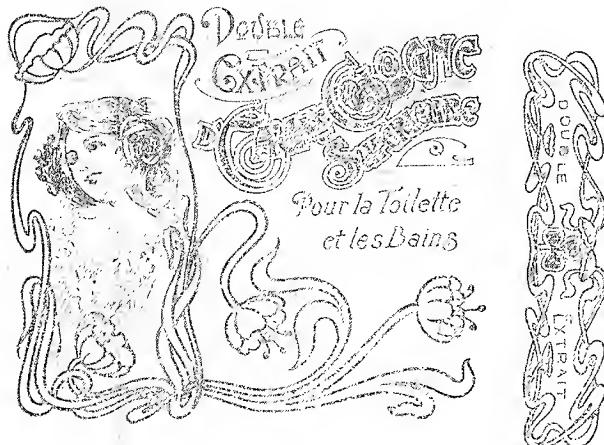 Double
Extrait
D'Eaux Cologne
Pour la Toilette
et les Bains
DOUBLE
EXTRAIT